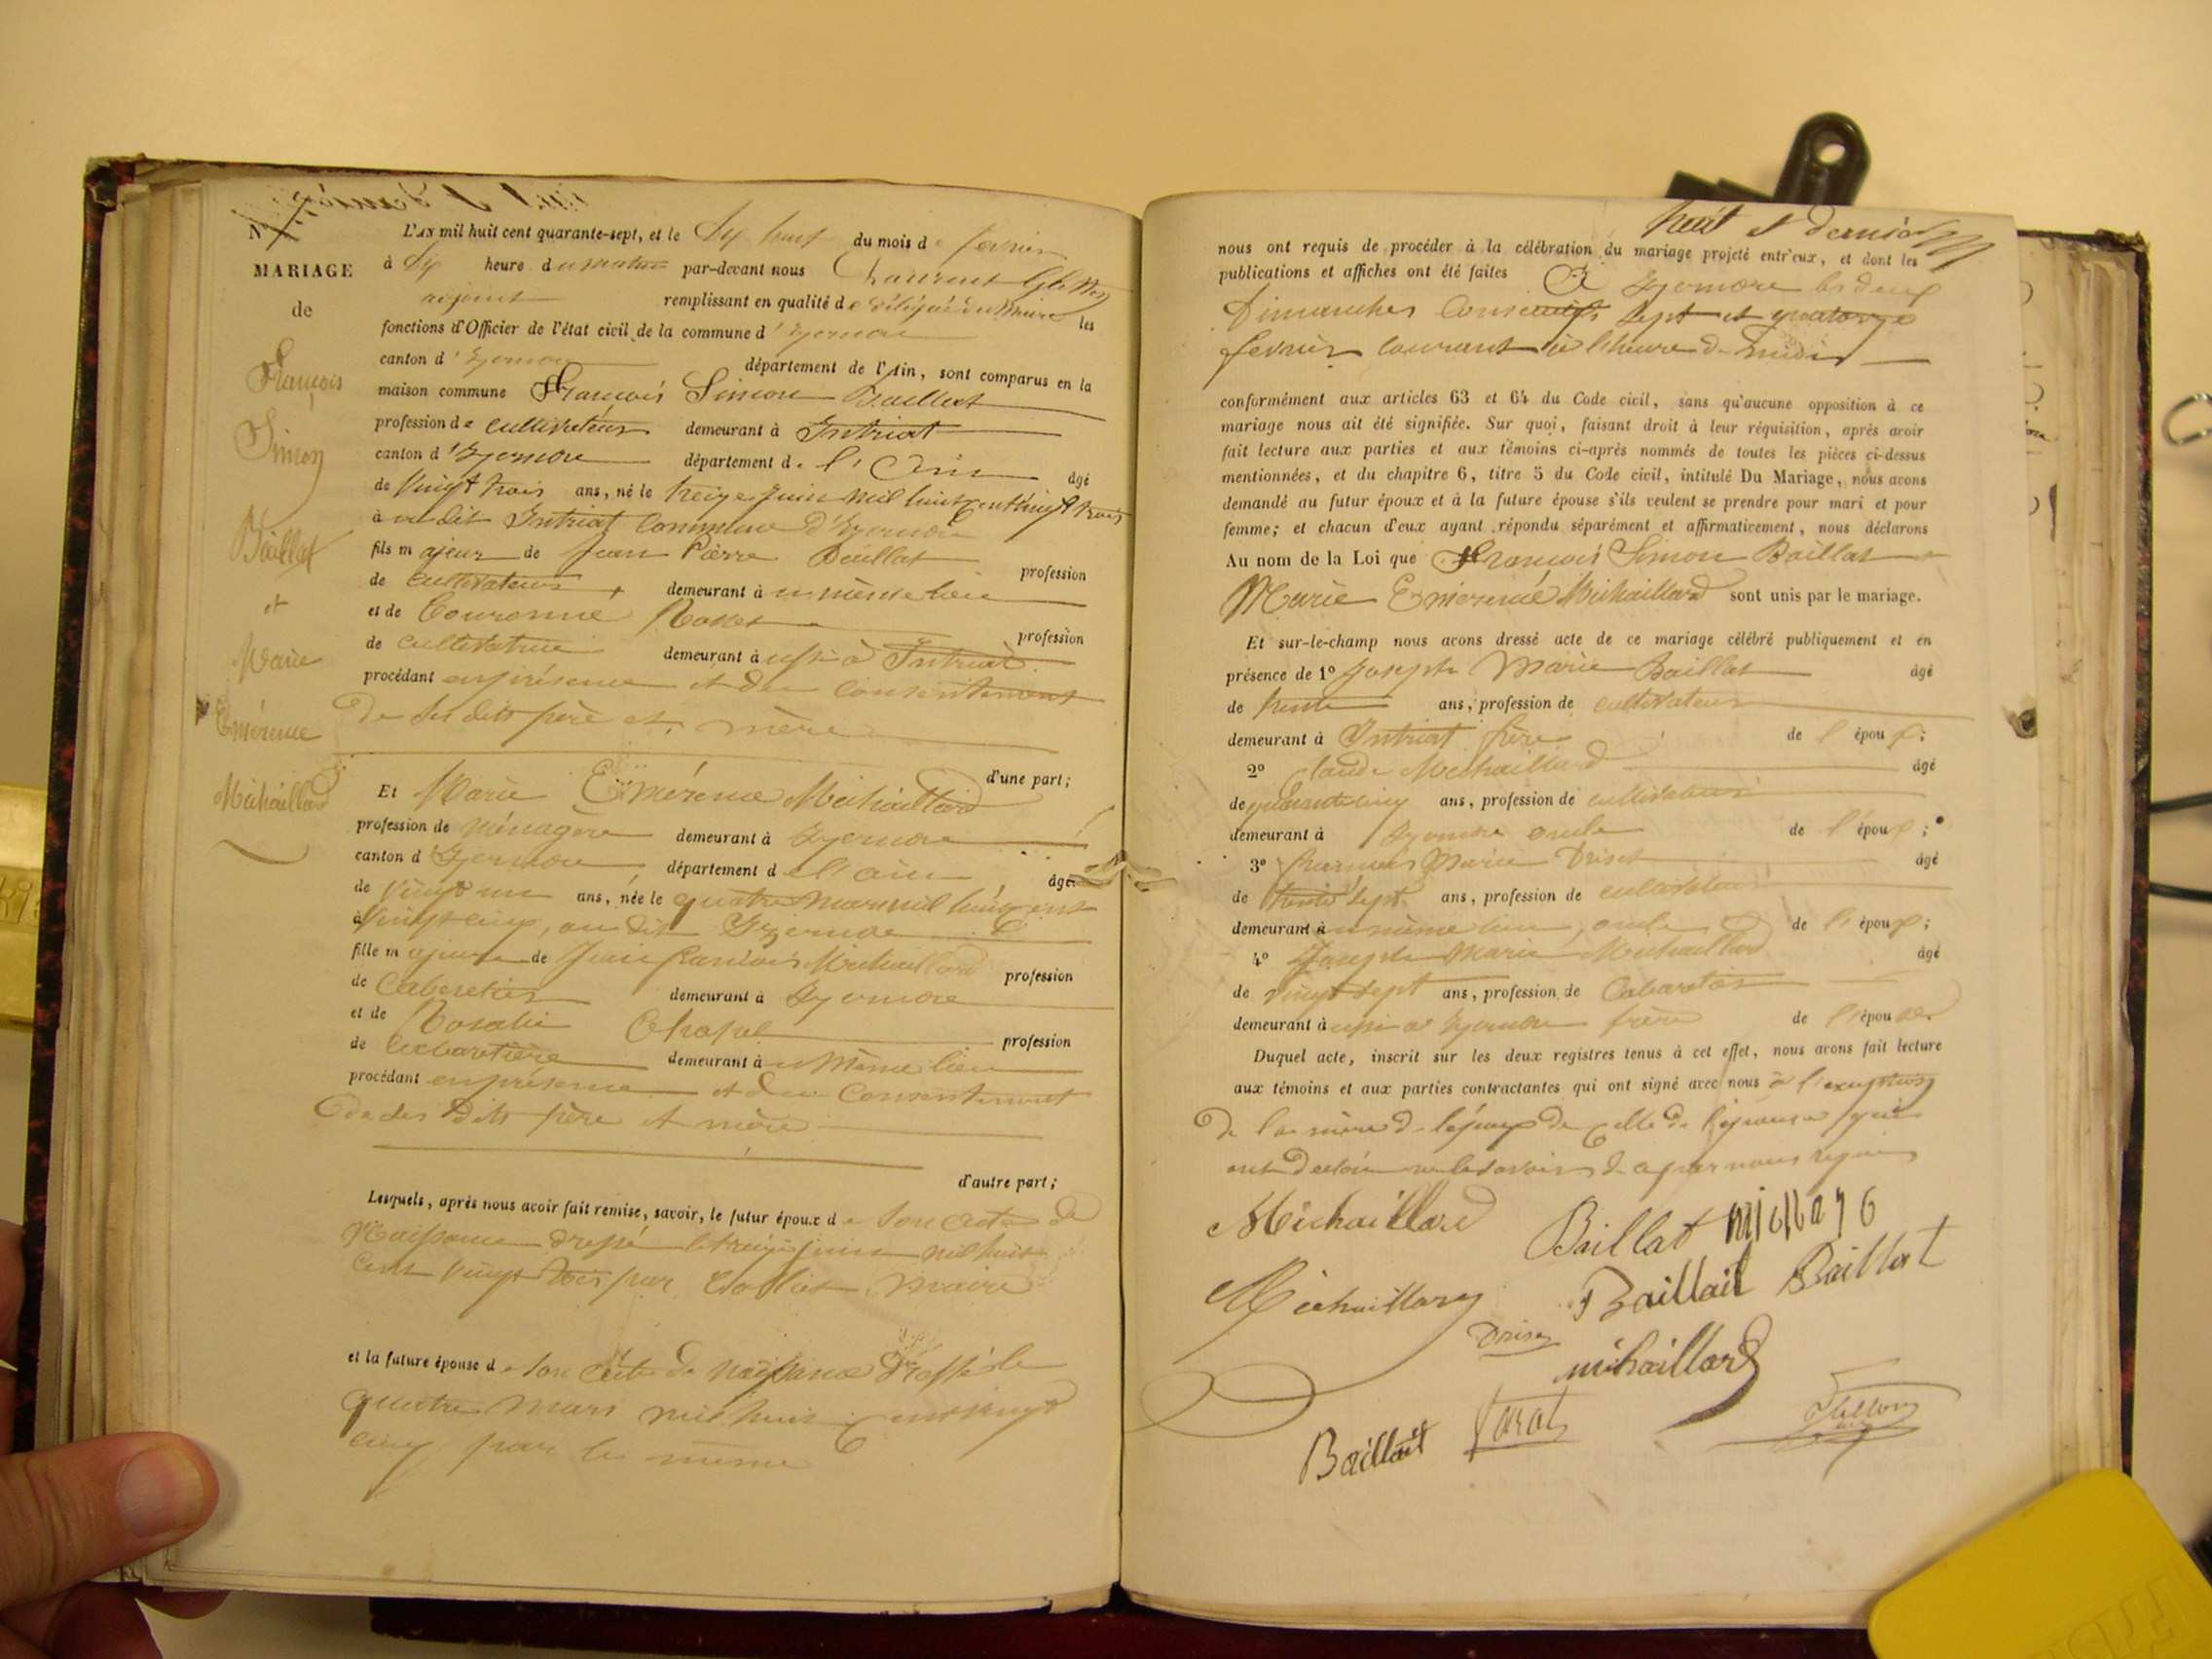 MARIAGE
de
François
Simon
Baillat
et
Marie
Emérence
Michaillard
L'AN mil huit cent quarante-sept, et le dix huit du mois de février
à dix heure du matin par-devant nous Laurent
adjoint remplissant en qualité de délégué du Maire les
fonctions d'Officier de l'état civil de la commune d'Izernore
canton d'Izernore département de l'Ain, sont comparus en la
maison commune François Simon Baillat
profession de cultivateur demeurant à Intriat
canton d'Izernore département de l'Ain âgé
de vingt trois ans, né le treize juin mil huit cent vingt trois
à un dit Intriat commune d'Izernore
fils majeur de Jean Pierre Baillat profession
de cultivateur demeurant à u même lieu
et de Couronne profession
de cultivatrice demeurant à ussi à Intriat
procédant en présence et du consentement
de ses dits père et mère
d'une part;
Et Marie Emérence Michaillard
profession de ménagère demeurant à Izernore
canton d'Izernore département de l'ain âgée
de vingt un ans, née le quatre mars mil huit cent
vingt cinq, au dit Izernore
fille majeure de Jean françois Michaillard profession
de Cabaretier demeurant à Izernore
et de Rosalie profession
de Cabaretière demeurant à u même lieu
procédant en présence et du Consentement
de ses dits père et mère
d'autre part;
Lesquels, après nous avoir fait remise, savoir, le futur époux de son acte de
Naissance dressé le treize juin mil huit
cent vingt trois par maire
et la future épouse de son acte de naissance dressé le
quatre mars mil huit cent vingt
cinq par le même
huit et dernier
nous ont requis de procéder à la célébration du mariage projeté entr'eux, et dont les
publications et affiches ont été faites à Izernore les deux
Dimanches consécutifs sept et quatorze
février courant à l'heure de midi
conformément aux articles 63 et 64 du Code civil, sans qu'aucune opposition à ce
mariage nous ait été signifiée. Sur quoi, faisant droit à leur réquisition, après avoir
fait lecture aux parties et aux témoins ci-après nommés de toutes les pièces ci-dessus
mentionnées, et du chapitre 6, titre 5 du Code civil, intitulé Du Mariage, nous avons
demandé au futur époux et à la future épouse s'ils veulent se prendre pour mari et pour
femme; et chacun d'eux ayant répondu séparément et affirmativement, nous déclarons
Au nom de la Loi que François Simon Baillat
Marie Emérence Michaillard sont unis par le mariage.
Et sur-le-champ nous avons dressé acte de ce mariage célébré publiquement et en
présence de 1º Joseph Marie Baillat âgé
de trente ans, profession de cultivateur
demeurant à Intriat frère de l'époux;
2º Claude Michaillard âgé
de quarante cinq ans, profession de cultivateur
demeurant à Izernore oncle de l'époux;
3º Marie âgé
de trente sept ans, profession de cultivateur
demeurant à u même lieu, oncle de l'époux;
4º Joseph Marie Michaillard âgé
de vingt sept ans, profession de Cabaretier
demeurant à ussi à Izernore frère de l'épouse.
Duquel acte, inscrit sur les deux registres tenus à cet effet, nous avons fait lecture
aux témoins et aux parties contractantes qui ont signé avec nous à l'exception
de la mère de l'époux de celle de l'épouse qui
ont déclaré ne le savoir de ce par nous requis
Michaillard Baillat
Michaillard Baillait Baillat
michaillard
Baillait